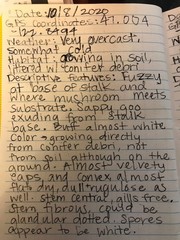 Date: 10/8/2020
GPS coordinates: 41.004
-122.8494
Weather: Very overcast.
Somewhat cold
Habitat: growing in soil,
littered w/ conifer debri
Descriptive features: Fuzzy
at base of stalk and
where mushroom meets
substrate. Sappy goo
exuding from stalk
base. Buff almost white
color - growing directly
from conifer debri, not
from soil although on the
ground. Almost velvety
caps, and convex almost
flat dry, dull rugulose as
well. Stem central, gills free.
Stem fibrous, could be
glandular dotted. Spores
appear to be white.